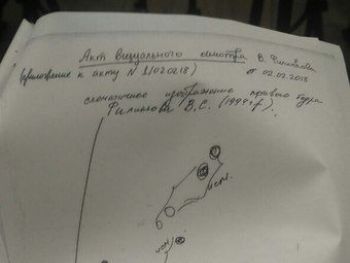 Акт визуального осмотра В. Филинкова
(приложение к акту N 1(020218) от 02.02.2018
схематичное изображение правого бедра
Филинкова В.С. (1994 г.р).